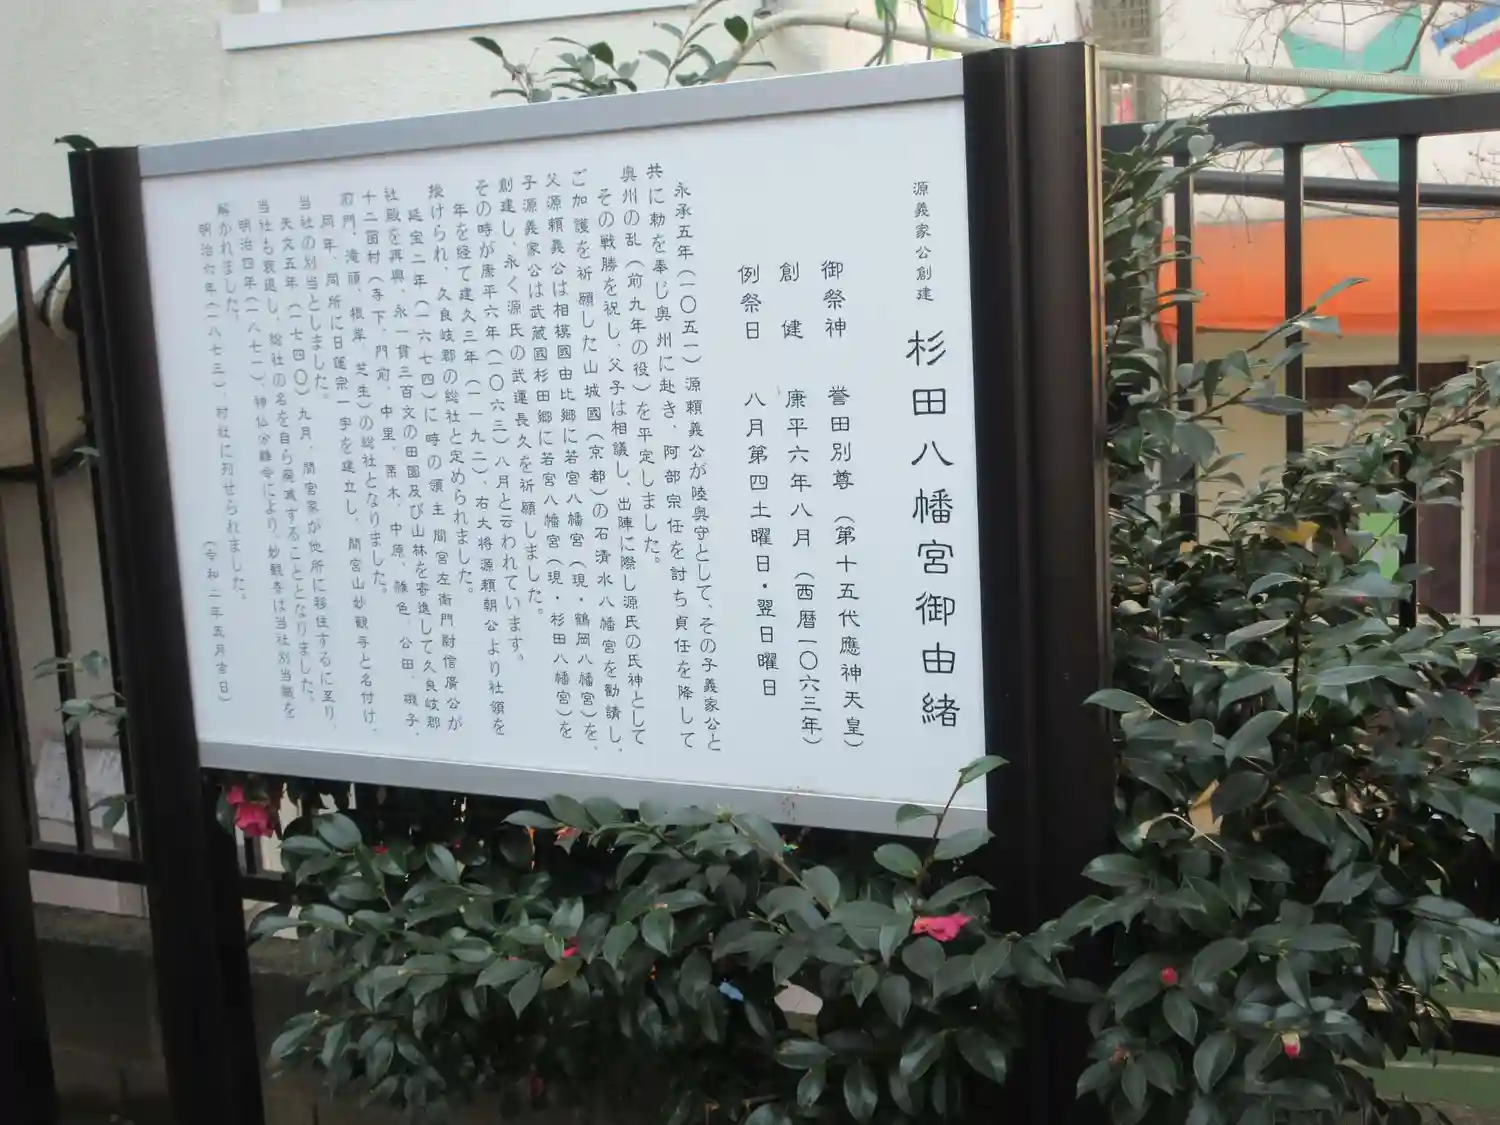 源義家公創建 杉田八幡宮御由緒
御祭神 誉田別尊（第十五代應神天皇）
創健 康平六年八月（西暦一〇六三年）
例祭日 八月第四土曜日・翌日曜日
永承五年（一〇五一）源頼義公が陸奥守として、その子義家公と
共に勅を奉じ奥州に赴き、阿部宗任を討ち貞任を降して
奥州の乱（前九年の役）を平定しました。
その戦勝を祝し、父子は相議し、出陣に際し源氏の氏神として
ご加護を祈願した山城國（京都）の石清水八幡宮を勧請し、
父源頼義公は相模國由比郷に若宮八幡宮（現・鶴岡八幡宮）を、
子源義家公は武蔵國杉田郷に若宮八幡宮（現・杉田八幡宮）を
創建し、永く源氏の武運長久を祈願しました。
その時が康平六年（一〇六三）八月と云われています。
年を経て建久三年（一一九二）、右大将源頼朝公より社領を
授けられ、久良岐郡の総社と定められました。
延宝二年（一六七四）に時の領主 間宮左衛門尉信廣公が
社殿を再興、永一貫三百文の田園及び山林を寄進して久良岐郡
十二箇村（寺下、門前、中里、栗木、中原、雑色、公田、磯子、
前門、滝頭、根岸、芝生）の総社となりました。
同年、同所に日蓮宗一宇を建立し、間宮山妙観寺と名付け、
当社の別当としました。
天文五年、（一七四〇）九月、間宮家が他所に移住するに至り、
当社も衰退し、総社の名を自ら廃滅することとなりました。
明治四年（一八七一）、神仏分離令により、妙観寺は当社別当職を
解かれました。
明治六年（一八七三）、村社に列せられました。
（令和二年五月吉日）